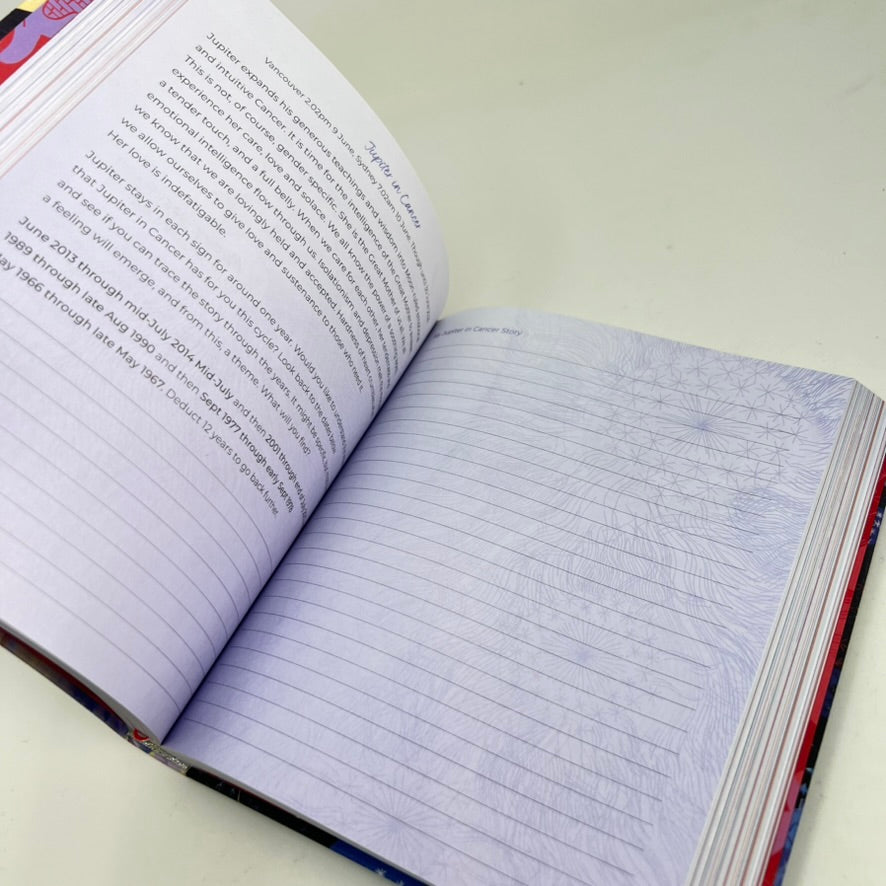 Jupiter in Cancer
Vancouver 2.02pm 9 June, Sydney 7.02am 10 June,
Jupiter expands his generous teachings and wisdom into Moon-ruled
and intuitive Cancer. It is time for the intelligence of the Great Mother
This is not, of course, gender specific. She is the Great Mother of us all,
experience her care, love and solace. We all know the power of a
a tender touch, and a full belly. When we care for each other her
emotional intelligence flow through us. Isolationism and depression
we know that we are lovingly held and accepted. Hardness of heart
we allow ourselves to give love and sustenance to those who need it.
Her love is indefatigable.
Jupiter stays in each sign for around one year. Would you like to understand
that Jupiter in Cancer has for you this cycle? Look back to the dates below
and see if you can trace the story through the years. It might be specific,
a feeling will emerge, and from this, a theme. What will you find?
June 2013 through mid-July 2014 Mid-July and then 2001 through end of July
1989 through late Aug 1990 and then Sept 1977 through early Sept 1978
May 1966 through late May 1967. Deduct 12 years to go back further.
Jupiter in Cancer Story